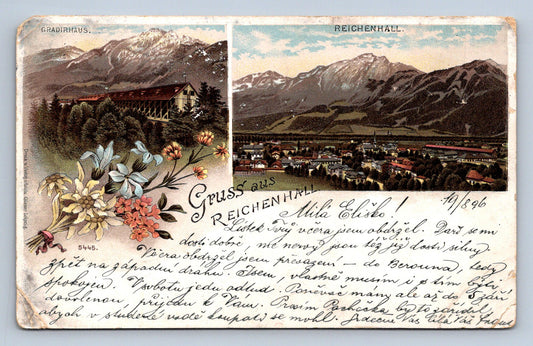 GRADIRHAUS.
REICHENHALL.
Gruss aus
REICHENHALL
5445.
19/896
Milá Eliško!
Lístek Tvůj včera jsem obdržel. Daří se mi
dosti dobře, mé novoty jsou též již dosti silny
Včera obdržel jsem přesazení – do Berouna, tedy
zpět na západní dráhu. Jsem, vlastně musím i s tím býti
spokojen. V sobotu jedu odtud. Poněvač mámy ale až do Září
dovolenou, přijedu k Vám. Prosím Pachečka by to zařídil
abych v studené vodě koupati se mohl. Srdečně Vás líbá Váš